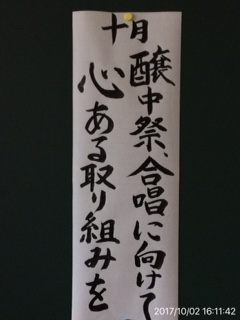 十月
醸中祭、合唱に向けて
心ある取り組みを
2017/10/02 16:11:42